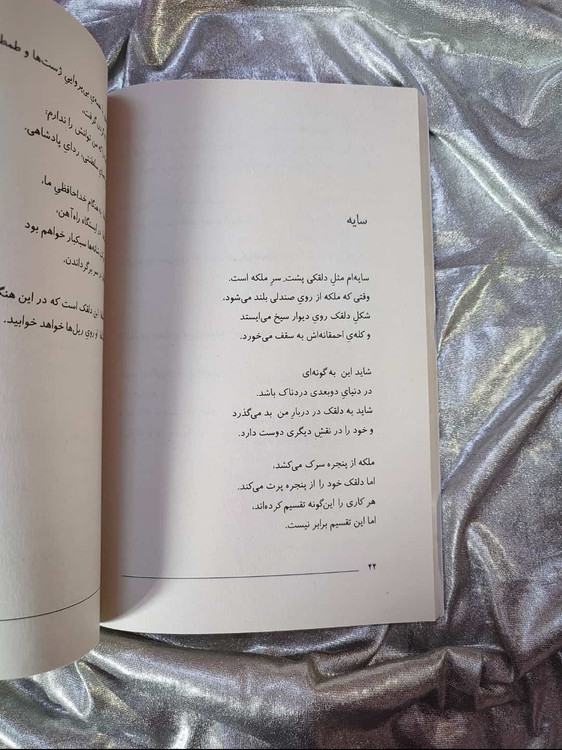 سایه
سایه‌ام مثلِ دلقکی پشتِ سرِ ملکه است.
وقتی که ملکه از رویِ صندلی بلند می‌شود،
شکلِ دلقک رویِ دیوار سیخ می‌ایستد
و کله‌ي احمقانه‌اش به سقف می‌خورد.
شاید این به گونه‌ای
در دنیایِ دوبعدی دردناک باشد.
شاید به دلقک در دربارِ من بد می‌گذرد
و خود را در نقشِ دیگری دوست دارد.
ملکه از پنجره سرک می‌کشد،
اما دلقک خود را از پنجره پرت می‌کند.
هر کاری را این‌گونه تقسیم کرده‌اند،
اما این تقسیم برابر نیست.
۴۲
بی‌پرواییِ ژست‌ها و
گرفت.
که من توانش را ندارم:
سلطنتی، ردایِ پادشاهی.
هنگام خداحافظیِ ما،
در ایستگاه راه‌آهن.
سبکبار خواهم بود
سر برگرداندن.
این دلقک است که در این
رویِ ریل‌ها خواهد خوابید.